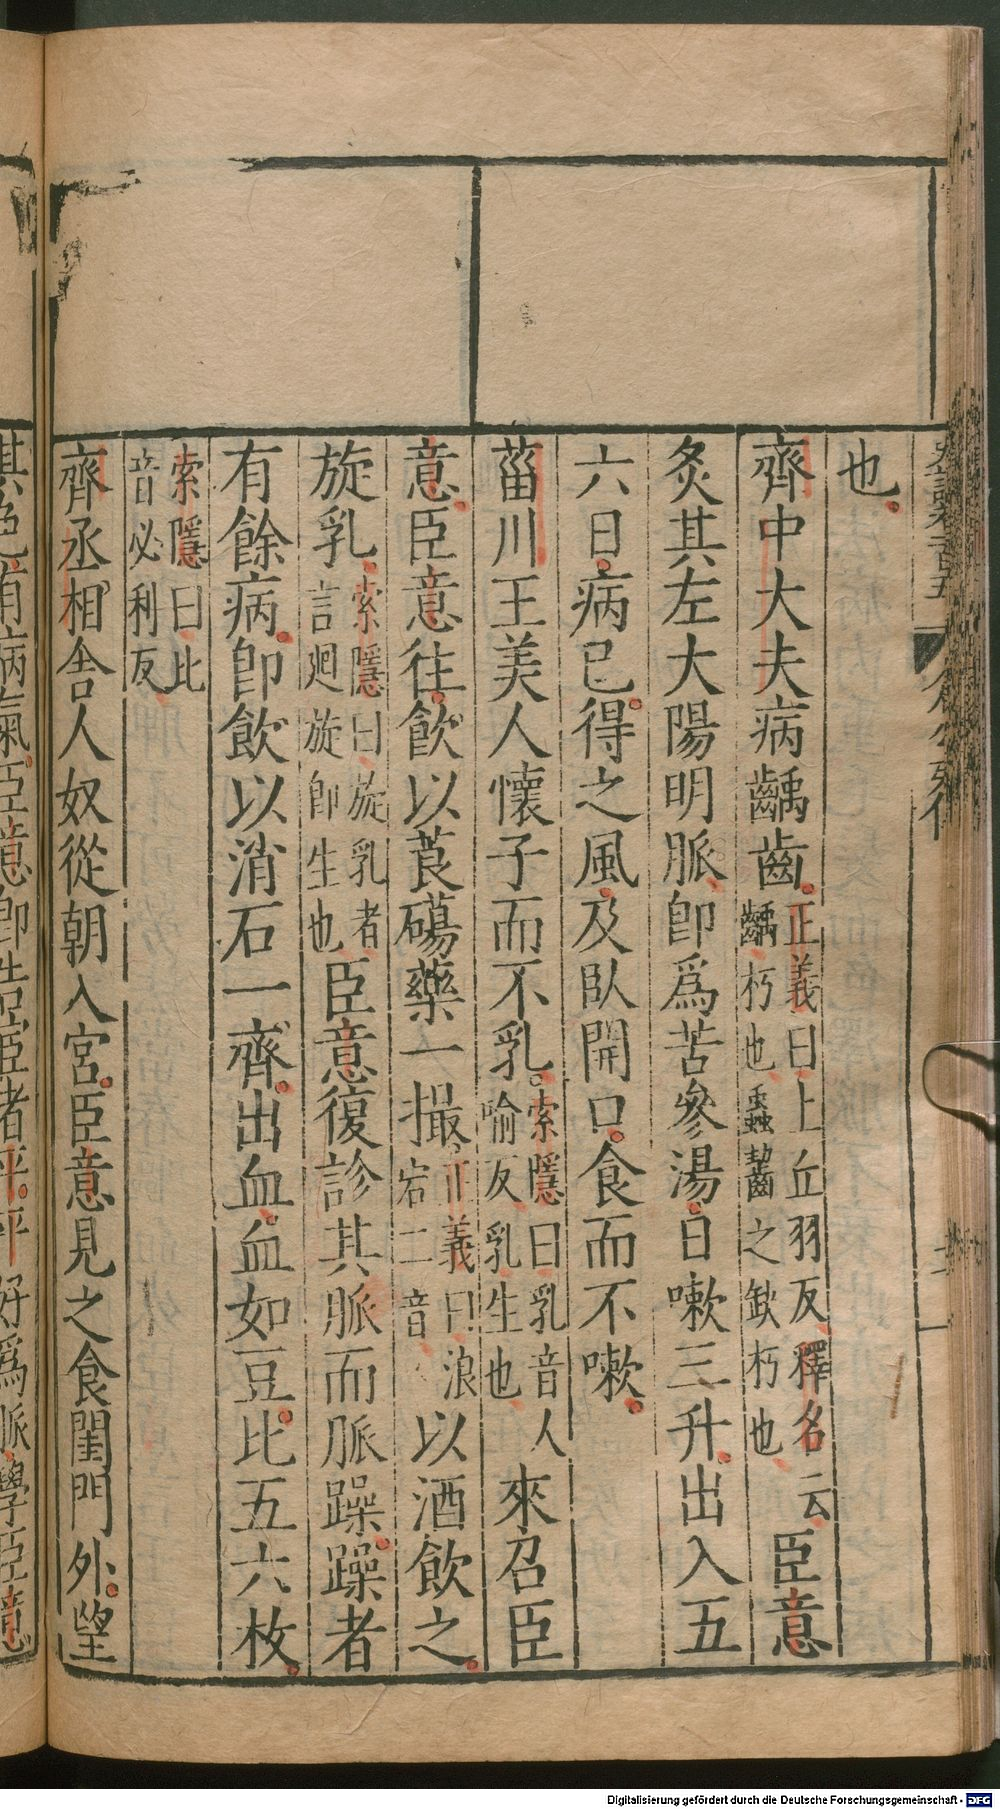 史記卷一百五 倉公列傳
也
齊中大夫病齲齒正義曰上丘羽反釋名云齲朽也蟲齧之缺朽也臣意
炙其左大陽明脈卽爲苦參湯日嗽三升出入五
六日病已得之風及臥開口食而不嗽
菑川王美人懷子而不乳索隱曰乳音人喻反乳生也來召臣
意臣意往飮以莨䓪藥一撮正義曰浪宕二音以酒飮之
旋乳索隱曰旋乳者言廻旋卽生也臣意復診其脈而脈躁躁者
有餘病卽飮以消石一齊出血血如豆比五六枚
索隱曰比音必利反
齊丞相舍人奴從朝入宮臣意見之食閨門外望
其色有病氣臣意卽告宦者平平好爲脈學臣意
Digitalisierung gefördert durch die Deutsche Forschungsgemeinschaft - DFG